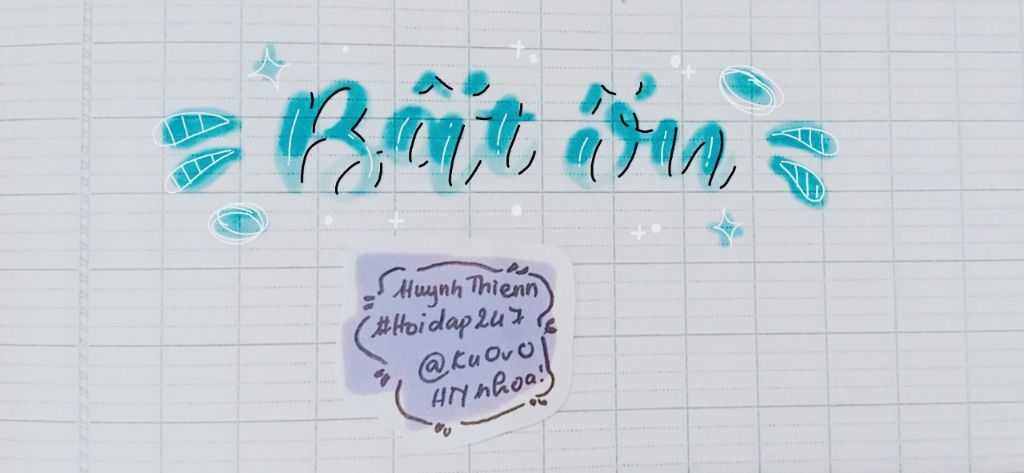 Bật ổn
HuynhThienn
#Hoidap247
@KuOvO
HN nhoa!